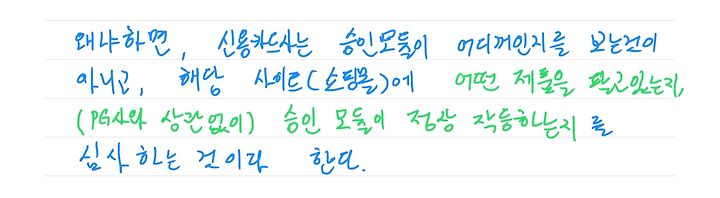 왜냐하면, 신용카드사는 승인모듈이 어디꺼인지를 보는건이
아니고, 해당 사이트(쇼핑몰)에 어떤 제품을 팔고있는지,
(PG사와 상관없이) 승인 모듈이 정상 작동하는지를
심사하는 것이다 한다.